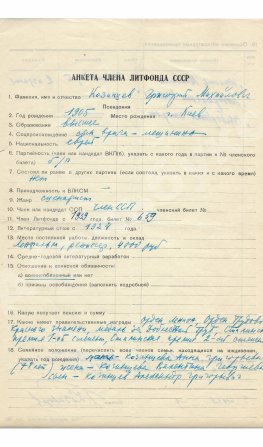 АНКЕТА ЧЛЕНА ЛИТФОНДА СССР
1. Фамилия, имя и отчество Козинцев Григорий Михайлович
Псевдоним
2. Год рождения 1905 Место рождения г. Киев
3. Образование высшее
4. Соцпроисхождение сын врача - мещанина
5. Национальность еврей
6. Партийность (член или кандидат ВКП(б), указать с какого года в партии и № членского
билета) б/п
7. Состоял ли ранее в других партиях (если состоял, указать в каких и с какого время)
Нет
8. Принадлежность к ВЛКСМ
9. Жанр сценарист
10. Член или кандидат ССП член ССП членский билет №
11. Член Литфонда с 1939 год, билет № 659
12. Литературный стаж с 1924 года.
13. Место постоянной работы, должность и оклад
Ленфильм, режиссер, 4000 руб
14. Средне-годовой литературный заработок
15. Отношение к воинской обязанности
а) военнообязанный или нет
б) признаки освобождения (заполнить подробнее)
16. Какую получает пенсию и сумму
17. Какие имеет правительственные награды орден Ленина, Орден Трудового
Красного Знамени, медаль за доблестный труд, Сталинская
премия 1-ой степени, Сталинская премия 2-ой степени
18. Семейное положение (перечислить всех членов семьи, находящихся на иждивении,
указать год рождения) мать - Козинцева Анна Григорьевна
(74 лет) жена - Козинцева Валентина Георгиевна
сын - Козинцев Александр Григорьевич